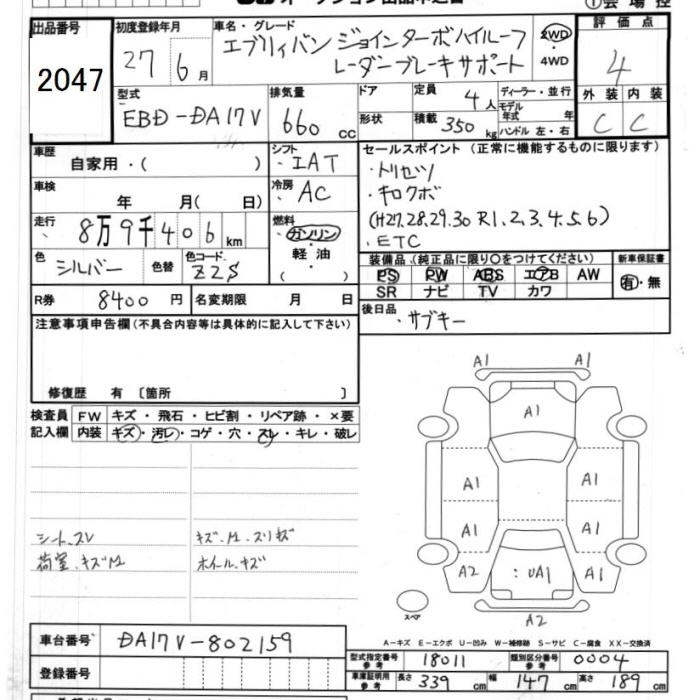 ①会場控
出品番号 初度登録年月 車名・グレード 評価点
2047 27年6月 エブリィバン ジョインターボハイルーフ 2WD
レーダーブレーキサポート 4WD 4
型式 排気量 ドア 定員 4人 ディーラー・並行 外装 内装
EBD-DA17V 660cc 形状 積載 350kg モデル年式 年 C C
ハンドル 左・右
車歴 自家用・( ) シフト ・IAT セールスポイント (正常に機能するものに限ります)
車検 年 月( 日) 冷房 ・AC ・トリセツ
・キロクボ
走行 8万9千406km 燃料 ガソリン・軽油・( ) (H27,28,29,30 R1,2,3,4,5,6)
・ETC
色 シルバー 色替 色コード Z2S 装備品 (純正品に限り○をつけてください) 新車保証書
PS PW ABS エアB AW 有・無
R券 8400円 名変期限 月 日 SR ナビ TV カワ
注意事項申告欄 (不具合内容等は具体的に記入して下さい) 後日品 ・サブキー
修復歴 有 〔箇所 〕
検査員 FW キズ・飛石・ヒビ割・リペア跡・×要
記入欄 内装 キズ・汚レ・コゲ・穴・スレ・キレ・破レ
シート、スレ キズ、M、スリキズ
荷室、キズM ホイール、キズ
A1 A1
A1
A1 A1
A1 A1
A2 :UA1 A1
スペア A2
A-キズ E-エクボ U-凹み W-補修跡 S-サビ C-腐食 XX-交換済
車台番号 DA17V-802159
型式指定番号 参考 18011 類別区分番号 参考 0004
登録番号 車庫証明用 参考 長さ 339cm 幅 147cm 高さ 189cm